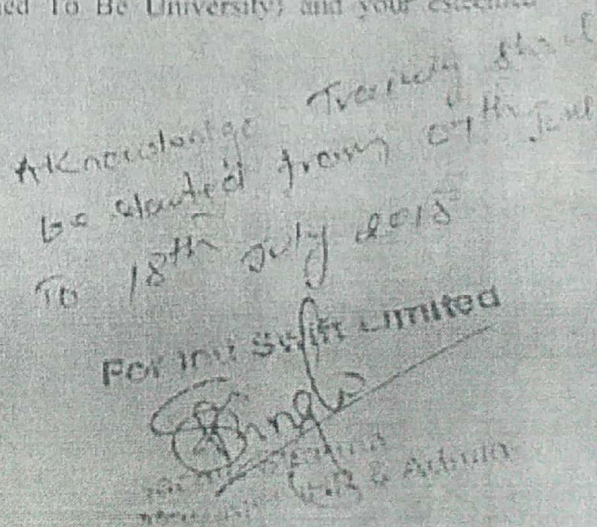 ed To Be University) and your esteemed
Aknowledge Training shall
be started from 07th June
To 18th July 2015
For Ind Swift Limited
HR & Admin